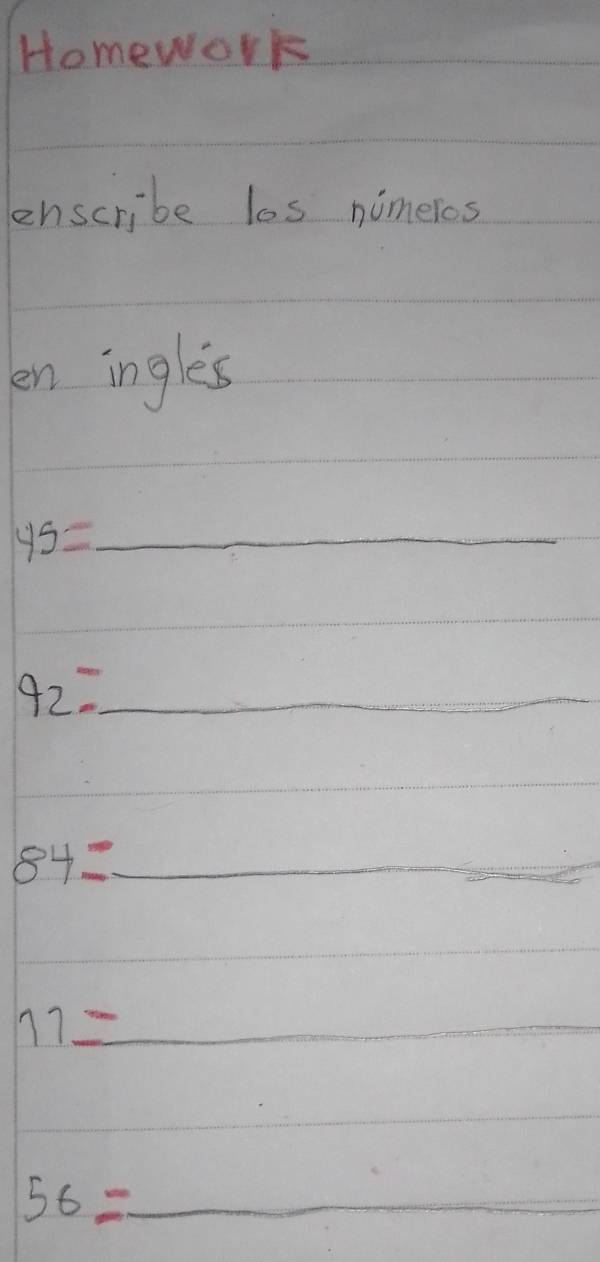 Homework
enscribe los números
en inglés
45=
92=
84=
77=
56=